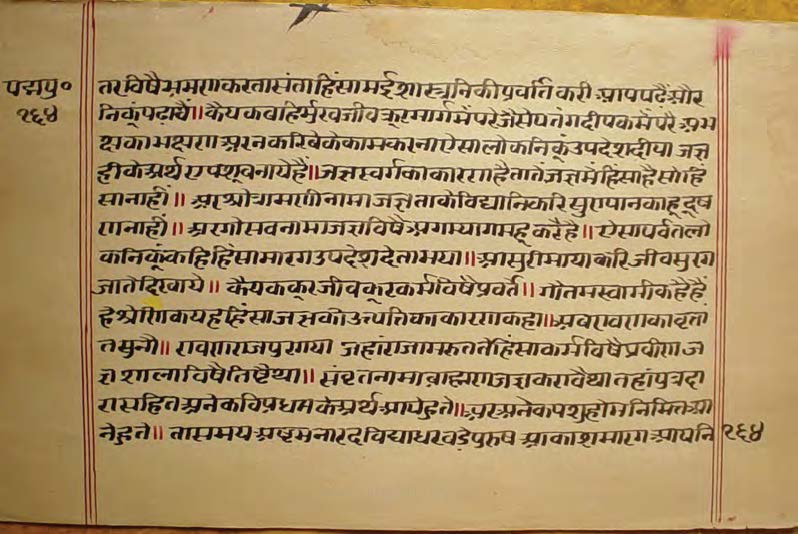 पद्मपु०
१६४
तरविषैभ्रमणकरतासंताहिंसामईशास्त्रनिकीप्रवर्तिकरी आपपढैऔर
निकूंपढायै॥कैयकवहिर्मुखजीवक्रूरमार्गमेंपरेजैसेपतंगदीपकमेंपरैअभ
क्षकाभक्षणअरनकरिबेकेकामकरनाऐसालोकनिकूंउपदेशदीयाजज्ञ
हीकेअर्थएपशूवनायेहैं॥जज्ञस्वर्गकाकारणहैतातेंजज्ञमेंहिंसाहैसोहिं
सानाहीं॥अरश्रोत्रामणीनामाजज्ञताकेविद्यानिकरिसुरापानकाहूदूष
णनाहीं॥अरगोसवनामाजज्ञविषैअगम्यागमहूकरैहै॥ऐसापर्वतलो
कनिकूंकहिहिंसामारगउपदेशदेताभया॥आसुरीमायाकरिजीवसुरग
जातेदिखाये॥कैयकक्रूरजीवकूरकर्मविषैप्रवर्ते॥गोतमस्वामीकहैहैं
हेश्रेणिकयहहिंसाजज्ञकीउत्पत्तिकाकारणकहा॥अवरावणकावृतां
तसुनौ॥रावणराजपुरगया जहांराजामरुततेहिंसाकर्मविषैप्रवीणज
ज्ञशालाविषैतिष्टैथा॥संरतनामाब्राह्मणजज्ञकरावैथातहांपुत्रदा
रासहितअनेकविप्रधमकेअर्थआएहुते॥अरअनेकपशुहोमनिमितआ
नेहुते॥तासमयअष्टमनारदविद्याधरवडेपुरुषआकाशमारगआयनि
१६४